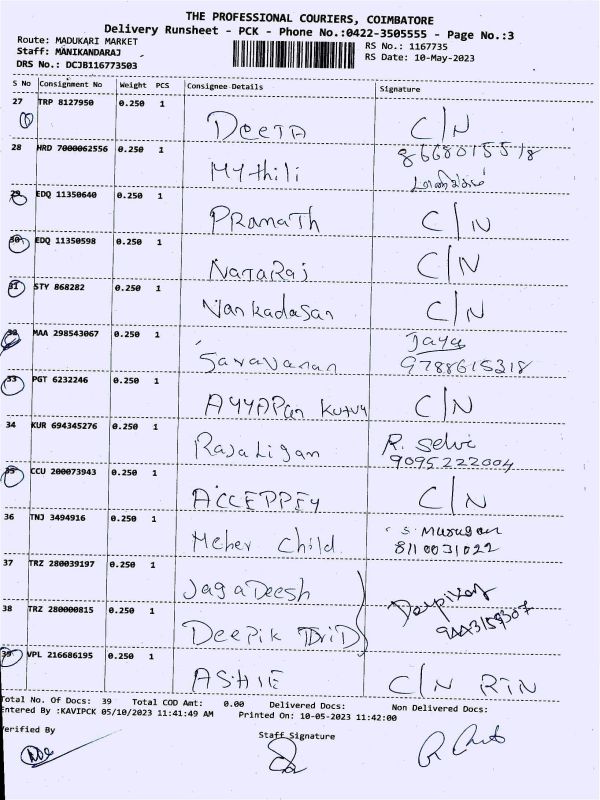 THE PROFESSIONAL COURIERS, COIMBATORE
Delivery Runsheet - PCK - Phone No.:0422-3505555 - Page No.:3
Route: MADUKARI MARKET
RS No.: 1167735
Staff: MANIKANDARAJ
RS Date: 10-May-2023
DRS No.: DCJB116773503
S No Consignment No Weight PCS Consignee Details Signature
27 TRP 8127950 0.250 1 DeeTA C/N
28 HRD 7000062556 0.250 1 Mythili 8668015518
29 EDQ 11350640 0.250 1 PRamaTh C/N
30 EDQ 11350598 0.250 1 NagaRaj C/N
31 STY 868282 0.250 1 Vankadasan C/N
32 MAA 298543067 0.250 1 Saravanan Jaya
9788615318
33 PGT 6232246 0.250 1 AyyAPan Kutuy C/N
34 KUR 694345276 0.250 1 RaJaLigan R. Selvi
9095222004
35 CCU 200073943 0.250 1 ACCEPPEY C/N
36 TNJ 3494916 0.250 1 Meher Child S. Murugan
8110031022
37 TRZ 280039197 0.250 1 JagaDeesh
38 TRZ 280000815 0.250 1 Deepik
39 VPL 216686195 0.250 1 ASHIE C/N RTN
Total No. Of Docs: 39 Total COD Amt: 0.00 Delivered Docs: Non Delivered Docs:
Entered By :KAVIPCK 05/10/2023 11:41:49 AM Printed On: 10-05-2023 11:42:00
Verified By Staff Signature